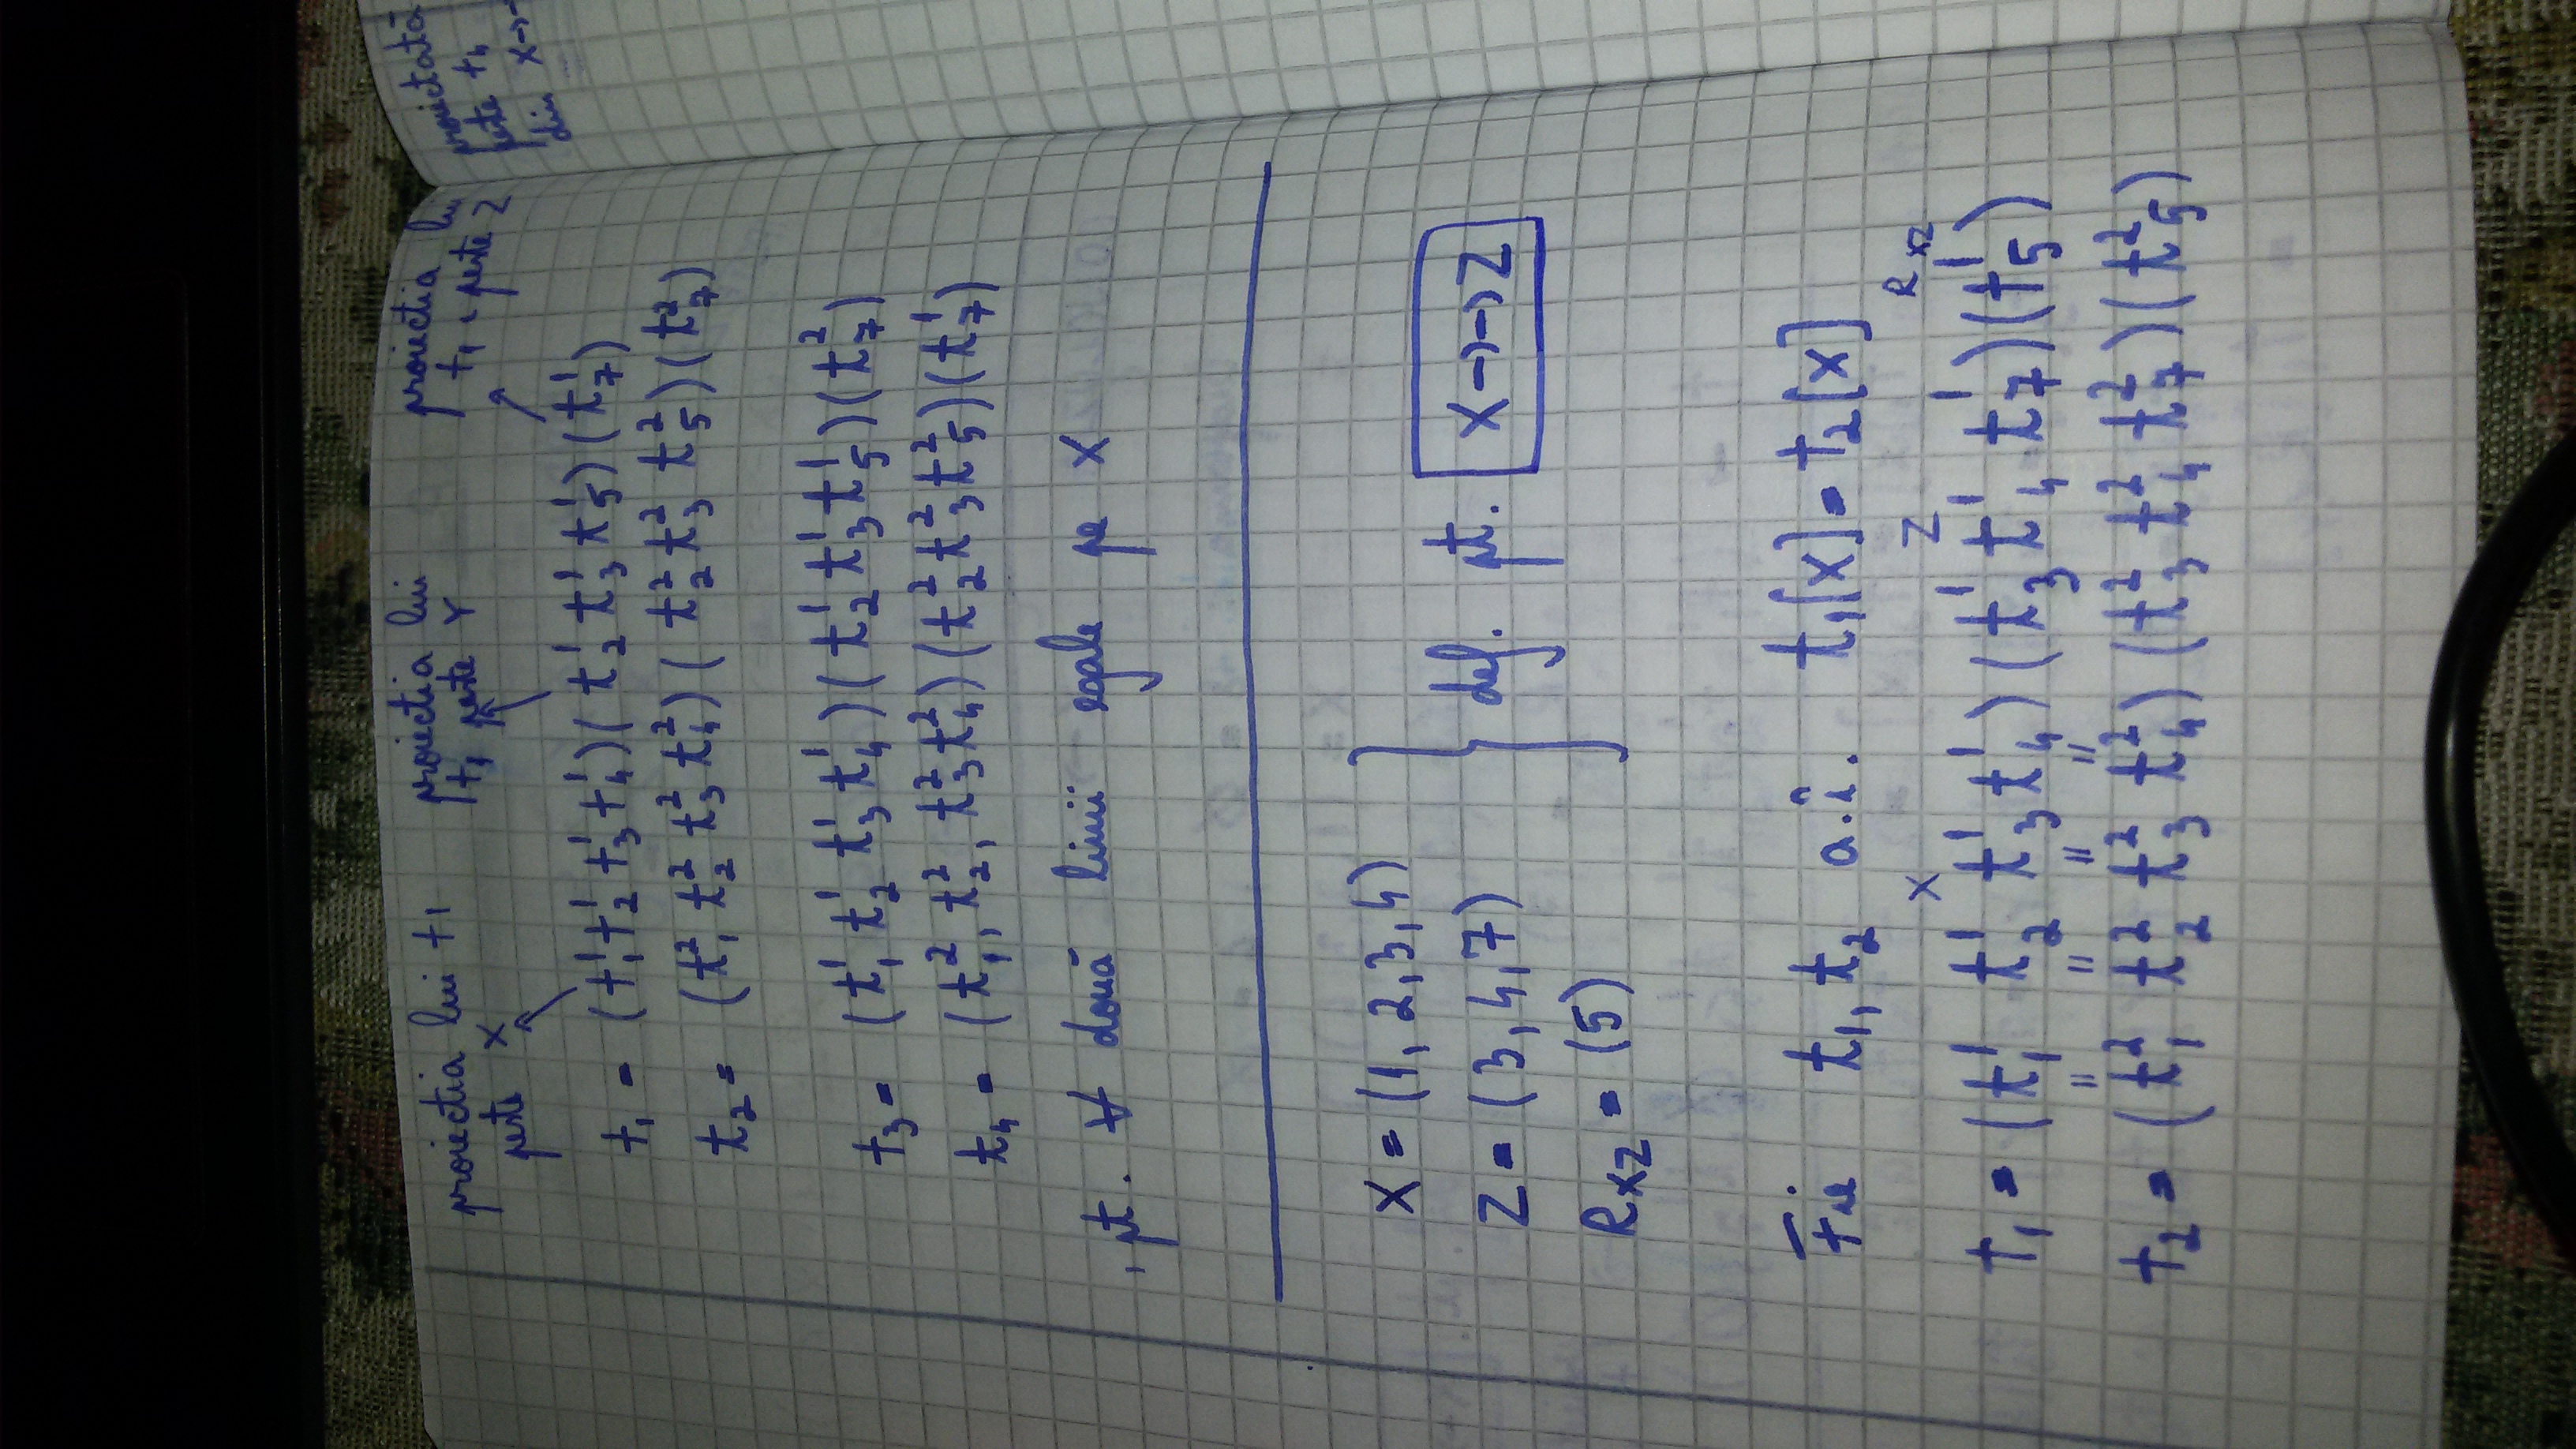 proiectia lui t₁ peste X
proiectia lui t₁ peste Y
proiectia lui t₁ peste Z
t₁ = (t₁¹ t₂¹ t₃¹ t₄¹)(t₂¹ t₃¹ t₅¹)(t₇¹)
t₂ = (t₁² t₂² t₃² t₄²)(t₂² t₃² t₅²)(t₇²)
t₃ = (t₁¹ t₂¹ t₃¹ t₄¹)(t₂¹ t₃¹ t₅¹)(t₇²)
t₄ = (t₁², t₂², t₃² t₄²)(t₂² t₃² t₅²)(t₇¹)
, pt. ∀ două linii egale pe X
X = (1, 2, 3, 4)
Z = (3, 4, 7)
R_XZ = (5)
def. pt. X→→Z
Fie t₁, t₂ a.î. t₁[X] = t₂[X]
X Z R_XZ
t₁ = (t₁¹ t₂¹ t₃¹ t₄¹)(t₃¹ t₄¹ t₇¹)(t₅¹)
= = = =
t₂ = (t₁² t₂² t₃² t₄²)(t₃² t₄² t₇²)(t₅²)
proiectată
peste t₄
din X→